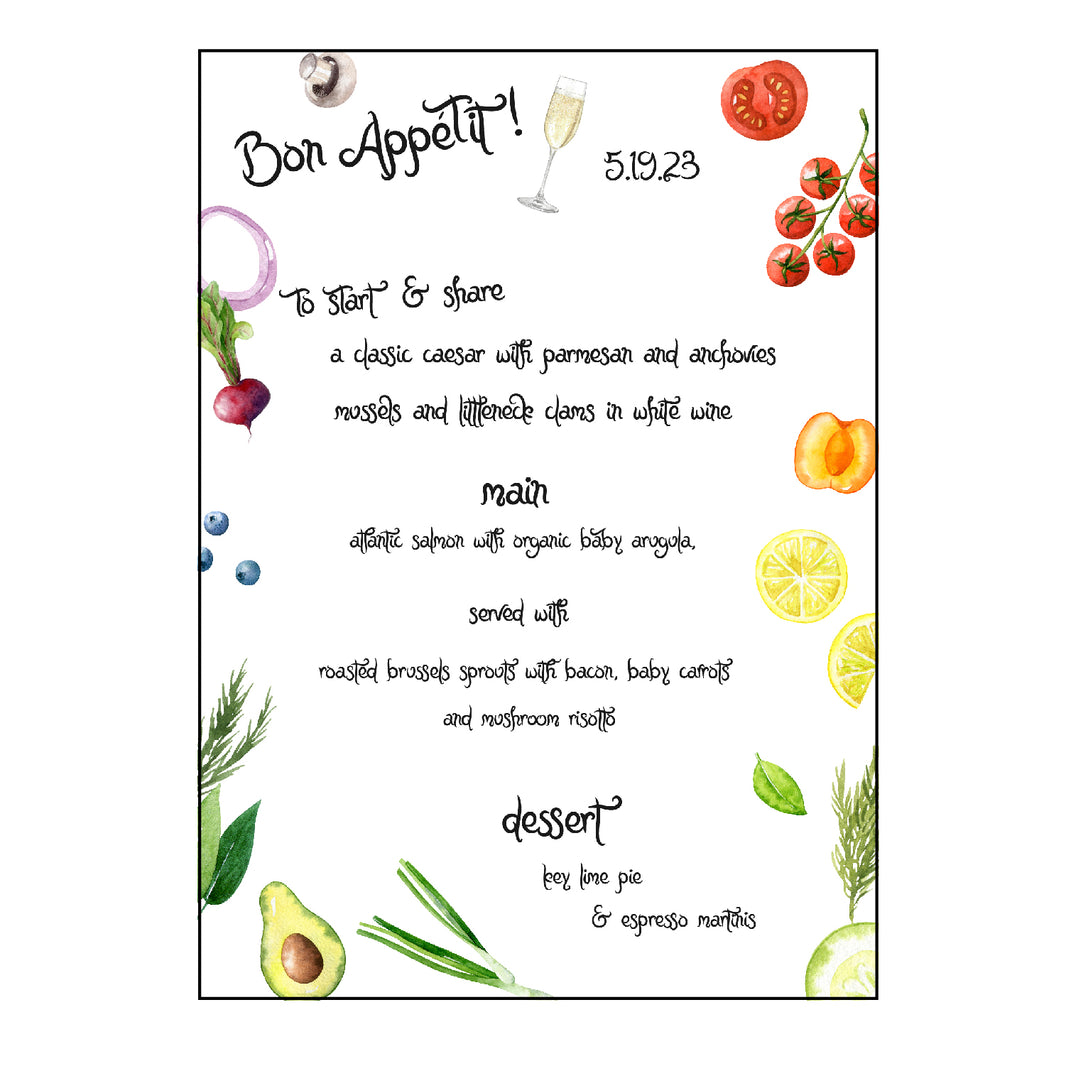 Bon Appétit!
5.19.23
to start & share
a classic caesar with parmesan and anchovies
mussels and littleneck clams in white wine
main
atlantic salmon with organic baby arugula,
served with
roasted brussels sprouts with bacon, baby carrots
and mushroom risotto
dessert
key lime pie
& espresso martinis